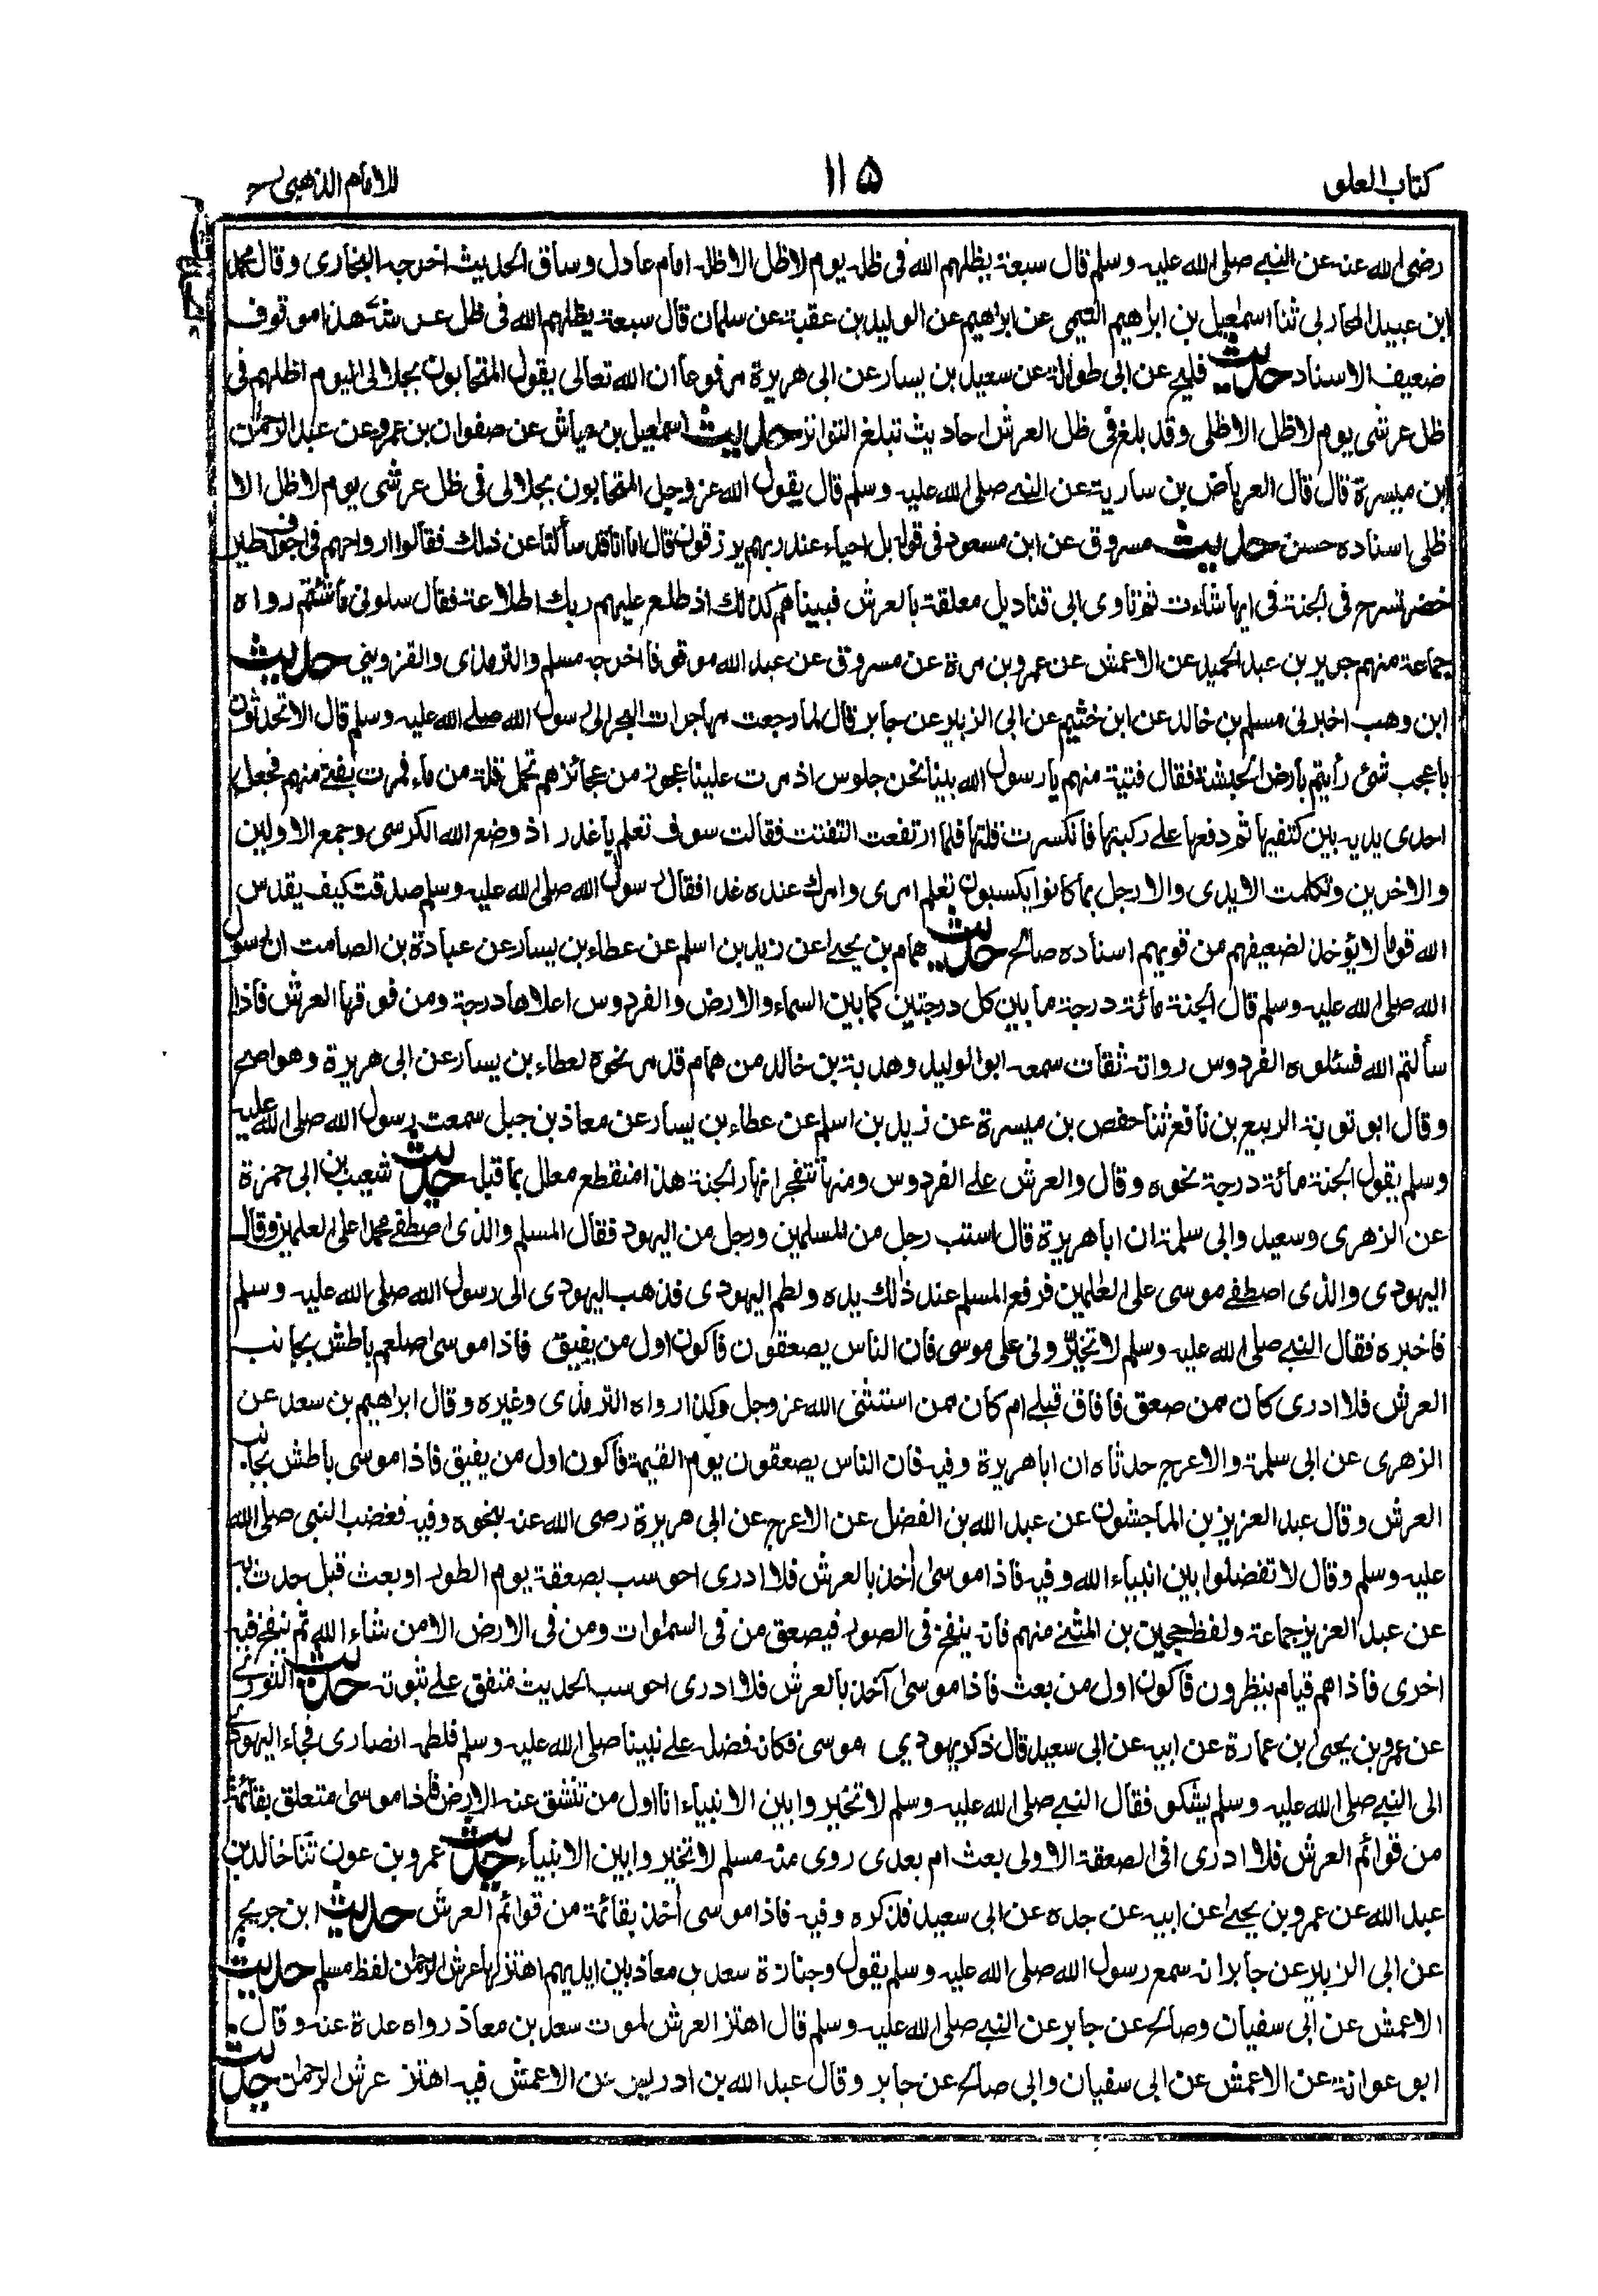 كتاب العلو
١١٥
للامام الذهبي
رضي الله عنه عن النبي صلى الله عليه وسلم قال سبعة يظلهم الله في ظله يوم لا ظل الا ظله امام عادل وساق الحديث اخرجه البخاري وقال محمد
ابن عبيد المحاربي ثنا اسمعيل بن ابراهيم التيمي عن ابراهيم عن الوليد بن عقبة عن سلمان قال سبعة يظلهم الله في ظل عرشه هذا موقوف
ضعيف الاسناد حديث فليح عن ابي طوالة عن سعيد بن يسار عن ابي هريرة مرفوعا ان الله تعالى يقول المتحابون بجلالي اليوم اظلهم في
ظل عرشي يوم لا ظل الا ظلي وقد بلغ في ظل العرش احاديث تبلغ التواتر حديث اسمعيل بن عياش عن صفوان بن عمرو عن عبد الرحمن
ابن ميسرة قال قال العرباض بن سارية عن النبي صلى الله عليه وسلم قال يقول الله عز وجل المتحابون بجلالي في ظل عرشي يوم لا ظل الا
ظلي اسناده حسن حديث مسروق عن ابن مسعود في قوله بل احياء عند ربهم يرزقون قال اما انا قد سألنا عن ذلك فقالوا ارواحهم في اجواف طير
خضر تسرح في الجنة في ايها شاءت ثم تاوى الى قناديل معلقة بالعرش فبيناهم كذلك اذ طلع عليهم ربك اطلاعة فقال سلوني ما شئتم رواه
جماعة منهم جرير بن عبد الحميد عن الاعمش عن عمرو بن مرة عن مسروق عن عبد الله موقوفا اخرجه مسلم والترمذي والقزويني حديث
ابن وهب اخبرني مسلم بن خالد عن ابن خثيم عن ابي الزبير عن جابر قال لما رجعت مهاجرات البحر الى رسول الله صلى الله عليه وسلم قال الا تحدثون
باعجب شئ رأيتم بارض الحبشة فقال فتية منهم يا رسول الله بينا نحن جلوس اذ مرت علينا عجوز من عجائزهم تحمل قلة من ماء فمرت بفتى منهم فجعل
احدى يديه بين كتفيها ثم دفعها على ركبتها فانكسرت قلتها فلما ارتفعت التفتت فقالت سوف تعلم يا غدر اذ وضع الله الكرسي وجمع الاولين
والاخرين وتكلمت الايدي والارجل بما كانوا يكسبون تعلم امري وامرك عنده غدا فقال رسول الله صلى الله عليه وسلم صدقت كيف يقدس
الله قوما لا يؤخذ لضعيفهم من قويهم اسناده صالح حديث همام بن يحيى عن زيد بن اسلم عن عطاء بن يسار عن عبادة بن الصامت ان رسول
الله صلى الله عليه وسلم قال الجنة مائة درجة ما بين كل درجتين كما بين السماء والارض والفردوس اعلاها درجة ومن فوقها العرش فاذا
سألتم الله فسئلوه الفردوس رواته ثقات سمعه ابو الوليد وهدبة بن خالد من همام قد مر نحوه لعطاء بن يسار عن ابي هريرة وهو اصح
وقال ابو توبة الربيع بن نافع ثنا حفص بن ميسرة عن زيد بن اسلم عن عطاء بن يسار عن معاذ بن جبل سمعت رسول الله صلى الله عليه
وسلم يقول الجنة مائة درجة نحوه وقال والعرش على الفردوس ومنها تتفجر انهار الجنة هذا منقطع معلل بما قبل حديث شعيب بن ابي حمزة
عن الزهري وسعيد وابي سلمة ان ابا هريرة قال استب رجل من المسلمين ورجل من اليهود فقال المسلم والذي اصطفى محمدا على العلمين وقال
اليهودي والذي اصطفى موسى على العلمين فرفع المسلم عند ذلك يده ولطم اليهودي فذهب اليهودي الى رسول الله صلى الله عليه وسلم
فاخبره فقال النبي صلى الله عليه وسلم لا تخيّروني على موسى فان الناس يصعقون فاكون اول من يفيق فاذا موسى صلعم باطش بجانب
العرش فلا ادري كان ممن صعق فافاق قبلي ام كان ممن استثنى الله عز وجل وكذا رواه الترمذي وغيره وقال ابراهيم بن سعد عن
الزهري عن ابي سلمة والاعرج حدثاه ان ابا هريرة وفيه فان الناس يصعقون يوم القيمة فاكون اول من يفيق فاذا موسى باطش بجانب
العرش وقال عبد العزيز بن الماجشون عن عبد الله بن الفضل عن الاعرج عن ابي هريرة رضي الله عنه بنحوه وفيه فغضب النبي صلى الله
عليه وسلم وقال لا تفضلوا بين انبياء الله وفيه فاذا موسى اخذ بالعرش فلا ادري احوسب بصعقة يوم الطور او بعث قبل حدث به
عن عبد العزيز جماعة ولفظ حجين بن المثنى منهم فانه ينفخ في الصور فيصعق من في السموات ومن في الارض الا من شاء الله ثم ينفخ فيه
اخرى فاذا هم قيام ينظرون فاكون اول من بعث فاذا موسى آخذ بالعرش فلا ادري احوسب الحديث متفق على ثبوته حديث الثوري
عن عمرو بن يحيى ابن عمارة عن ابيه عن ابي سعيد قال ذكر يهودي موسى فكانه فضله على نبينا صلى الله عليه وسلم فلطمه انصاري فجاء اليهودي
الى النبي صلى الله عليه وسلم يشكو فقال النبي صلى الله عليه وسلم لا تخيروا بين الانبياء انا اول من تنشق عنه الارض فاذا موسى متعلق بقائمة
من قوائم العرش فلا ادري افي الصعقة الاولى بعث ام بعدي روى منه مسلم لا تخيروا بين الانبياء حديث عمرو بن عون ثنا خالد بن
عبد الله عن عمرو بن يحيى عن ابيه عن جده عن ابي سعيد فذكره وفيه فاذا موسى اخذ بقائمة من قوائم العرش حديث ابن جريج
عن ابي الزبير عن جابر انه سمع رسول الله صلى الله عليه وسلم يقول وجنازة سعد بن معاذ بين ايديهم اهتز لها عرش الرحمن لفظ مسلم حديث
الاعمش عن ابي سفيان وصالح عن جابر عن النبي صلى الله عليه وسلم قال اهتز العرش لموت سعد بن معاذ رواه عدة عنه وقال
ابو عوانة عن الاعمش عن ابي سفيان وابي صالح عن جابر وقال عبد الله بن ادريس عن الاعمش فيه اهتز عرش الرحمن حديث